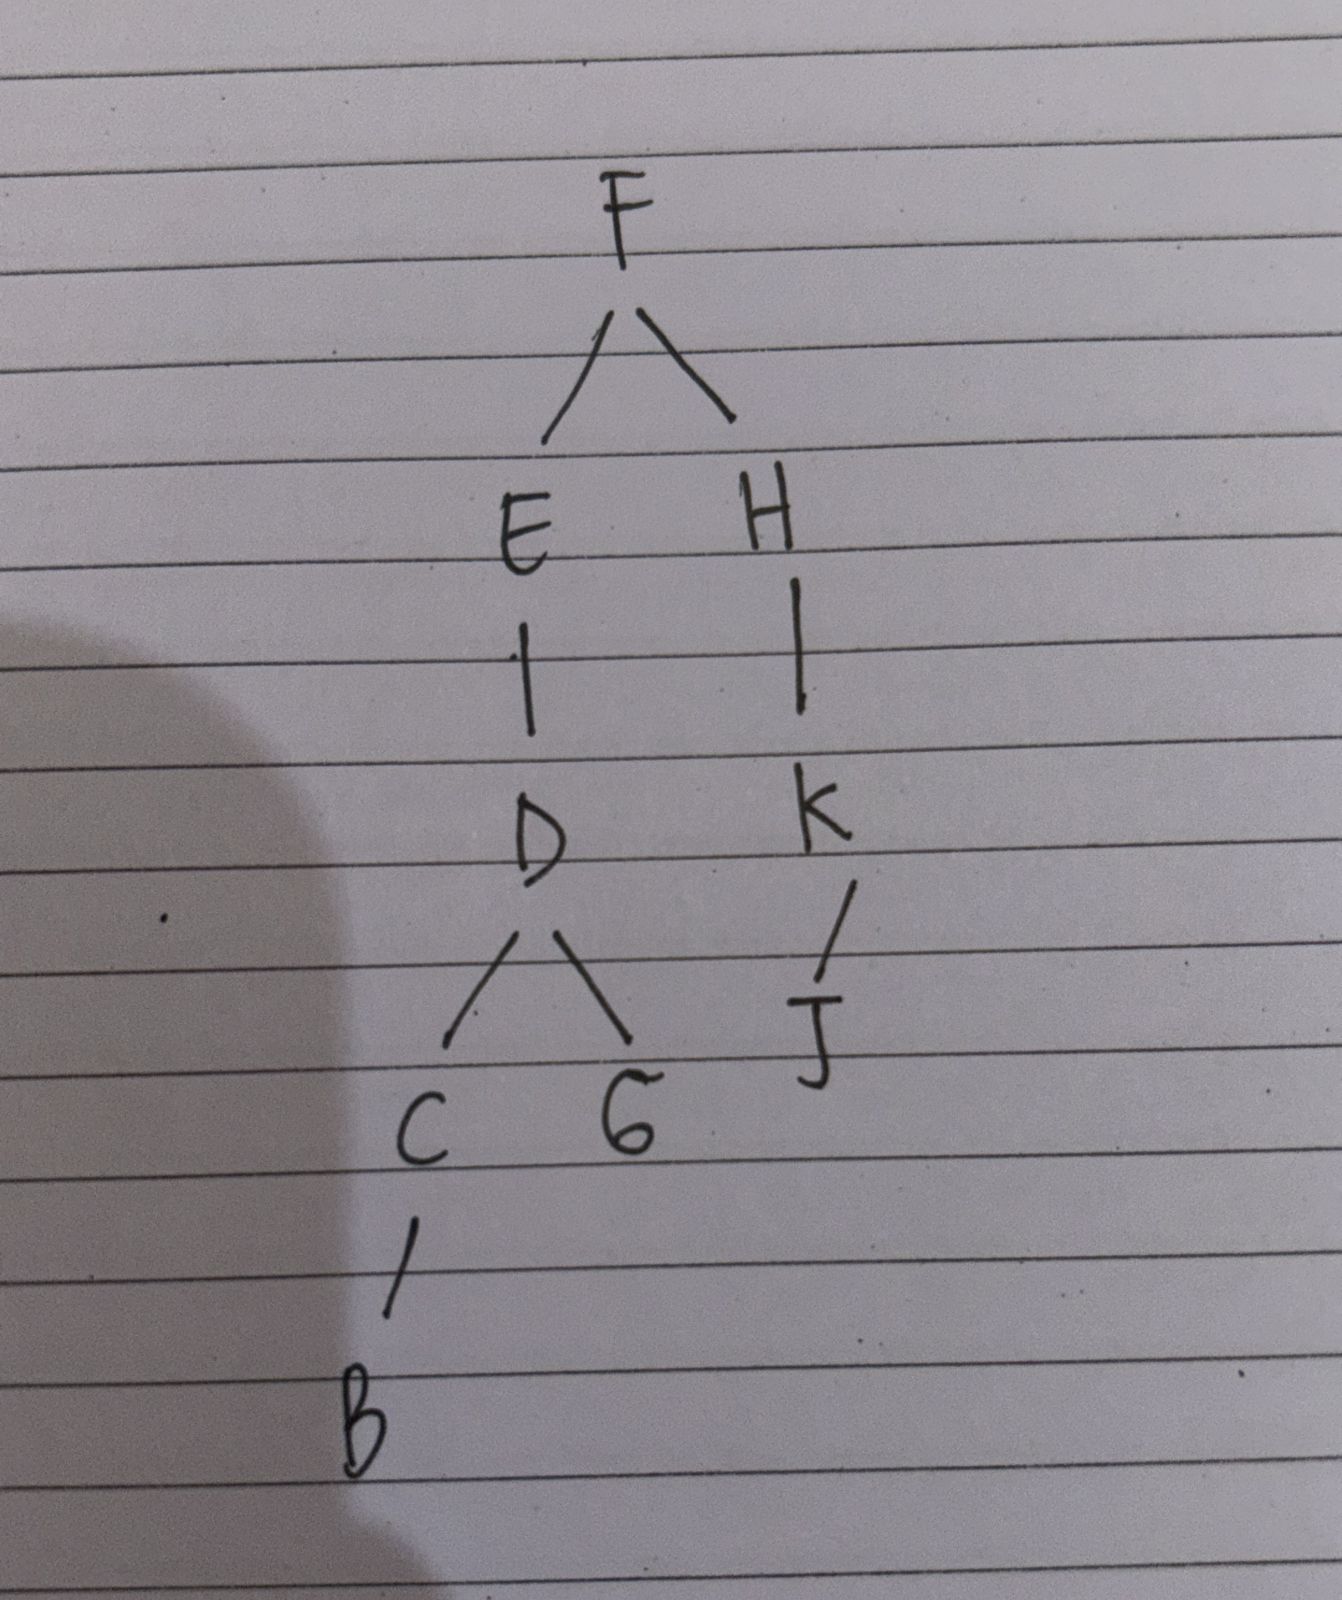 F
E H
D K
C G J
B